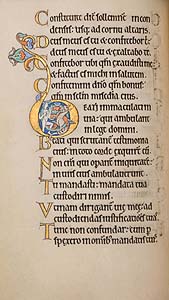 Constituite diem sollemnem in con
densis: usq; ad cornu altaris.
Deus meus es tu & confitebor t
deus meus es tu & exaltabo te.
Confitebor tibi qm exaudisti me
& factus es michi in salutem.
Confitemini dno qm bonus:
qm in sctm misericordia eius.
Beati immaculati in
uia: qui ambulant
in lege domini.
Beati qui scrutant testimonia
eius: in toto corde exquirt eu
Non eni qui opant iniquitate:
in uiis eius ambulauerunt.
Tu mandasti: mandata tua
custodiri nimis.
Utinam dirigant uie mee: ad
custodiendas iustificationes tuas
Tunc non confundar: cum p
spexero in omib; mandatis tuis.